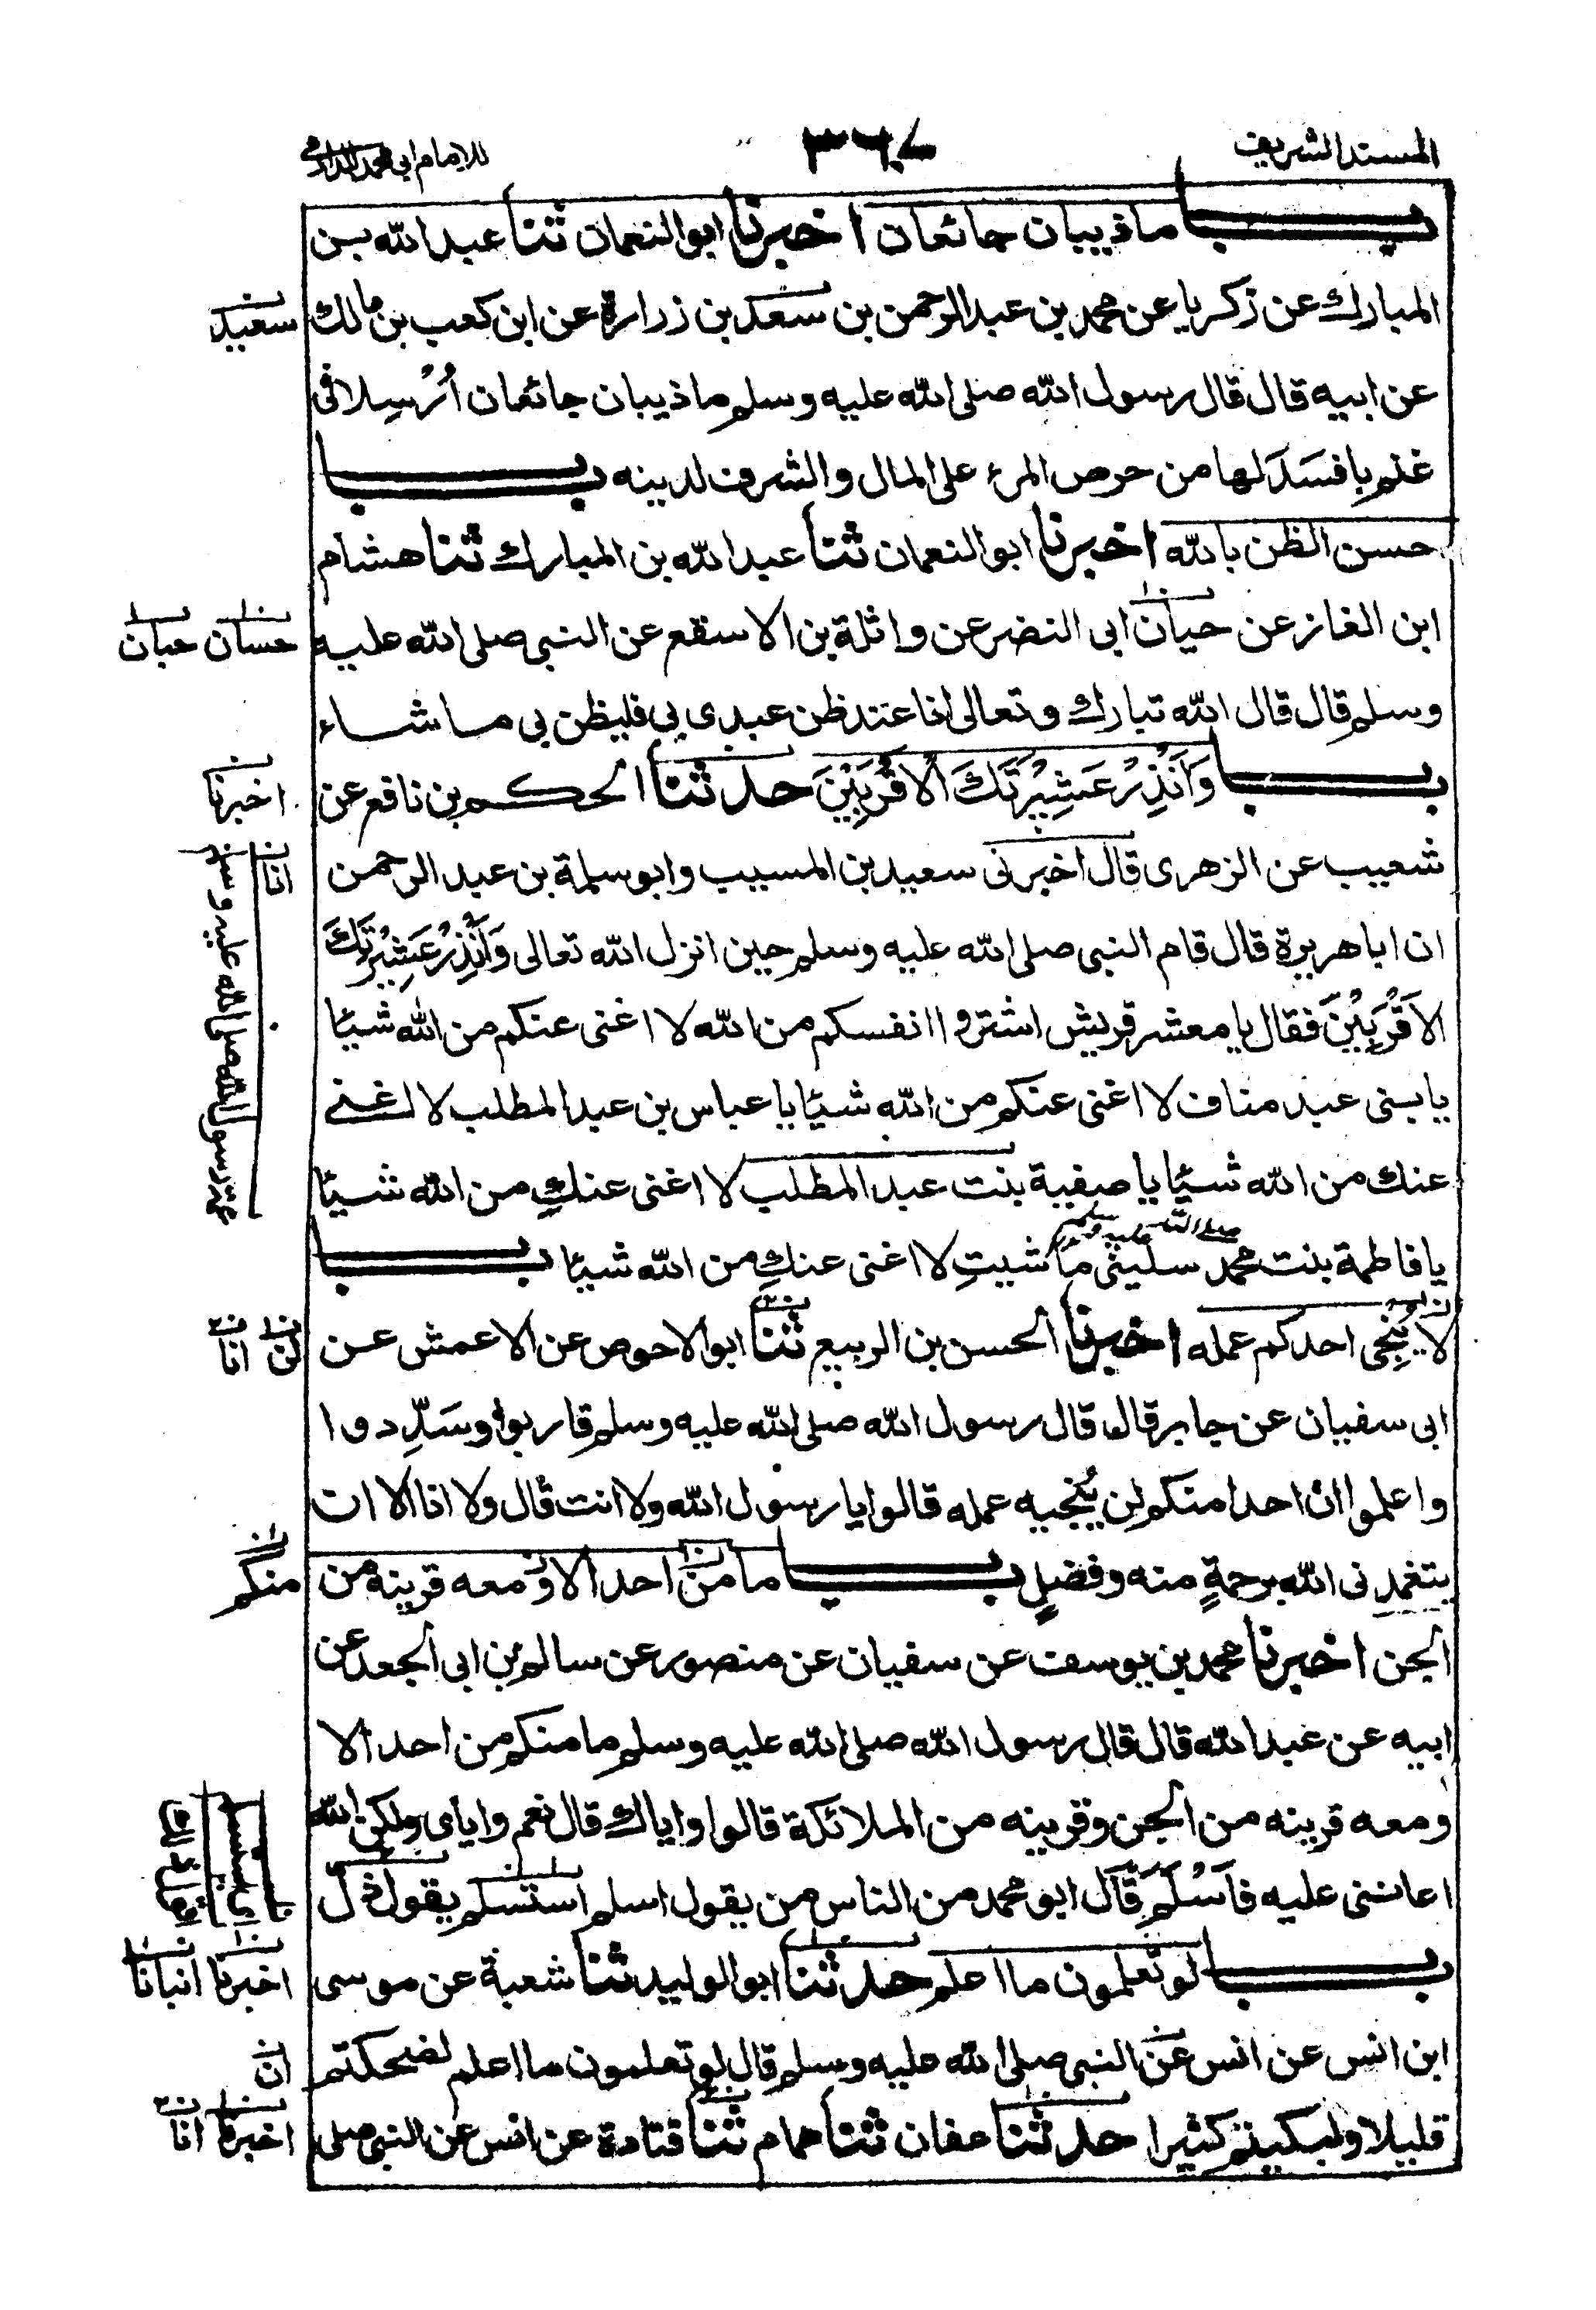 المسند الشريف
٣٦٧
للامام ابي محمد الدارمي
بـــاب ما ذيبان جائعان اخبرنا ابو النعمان ثنا عبد الله بن
المبارك عن زكريا عن محمد بن عبد الرحمن بن سعد بن زرارة عن ابن كعب بن مالك
سعيد
عن ابيه قال قال رسول الله صلى الله عليه وسلم ما ذيبان جائعان اُرْسِلا فى
غنم بافسَدَ لها من حرص المرء على المال والشرف لدينه بـــاب
حسن الظن بالله اخبرنا ابو النعمان ثنا عبد الله بن المبارك ثنا هشام
ابن الغاز عن حيان ابى النضر عن واثلة بن الاسقع عن النبى صلى الله عليه
حسان حبان
وسلم قال قال الله تبارك وتعالى انا عند ظن عبدى بى فليظن بى ما شاء
بـــاب وَاَنْذِرْ عَشِيْرَتَكَ الْاَقْرَبِيْنَ حدثنا الحكم بن نافع عن
اخبرنا
شعيب عن الزهرى قال اخبرنى سعيد بن المسيب وابو سلمة بن عبد الرحمن
انا
ان ابا هريرة قال قام النبى صلى الله عليه وسلم حين انزل الله تعالى وَاَنْذِرْ عَشِيْرَتَكَ
الاَقْرَبِيْنَ فقال يا معشر قريش اشتروا انفسكم من الله لا اغنى عنكم من الله شيئا
يا بنى عبد مناف لا اغنى عنكم من الله شيئا يا عباس بن عبد المطلب لا اغنى
عنك من الله شيئا يا صفية بنت عبد المطلب لا اغنى عنكِ من الله شيئا
عمة رسول الله صلى الله عليه وسلم
يا فاطمة بنت محمد صلى الله عليه وسلم سلينى ما شيتِ لا اغنى عنكِ من الله شيئا بـــاب
لا يُنْجِى احدكم عمله اخبرنا الحسن بن الربيع ثنا ابو الاحوص عن الاعمش عن
لن انا
ابى سفيان عن جابر قال قال رسول الله صلى الله عليه وسلم قاربوا وسَدِّدوا
واعلموا ان احدا منكم لن يُنْجيه عمله قالوا يا رسول الله ولا انت قال ولا انا الا ان
يتغمدنى الله برحمةٍ منه وفضلٍ بـــاب ما من احد الا و معه قرينه من
منكم
الجن اخبرنا محمد بن يوسف عن سفيان عن منصور عن سالم بن ابى الجعد عن
ابيه عن عبد الله قال قال رسول الله صلى الله عليه وسلم ما منكم من احد الا
ومعه قرينه من الجن وقرينه من الملائكة قالوا واياك قال نعم واياى ولكن الله
اعاننى عليه فاَسْلَمَ قال ابو محمد من الناس من يقول اسلم استسلم يقول ذل
بـــاب لو تعلمون ما اعلم حدثنا ابو الوليد ثنا شعبة عن موسى
اخبرنا انبانا
ابن انس عن انس عن النبى صلى الله عليه وسلم قال لو تعلمون ما اعلم لضحكتم
ان
قليلا ولبكيتم كثيرا حدثنا عفان ثنا همام ثنا قتادة عن انس عن النبى صلى
اخبرنا انا